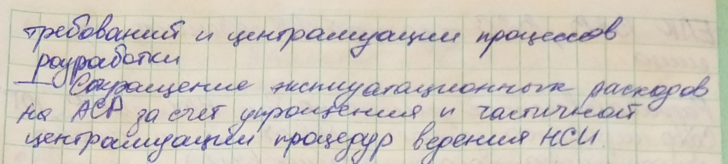 требований и централизации процессов
разработки
— Сокращение эксплуатационных расходов
на АСР за счет упрощения и частичной
централизации процедур ведения НСИ.